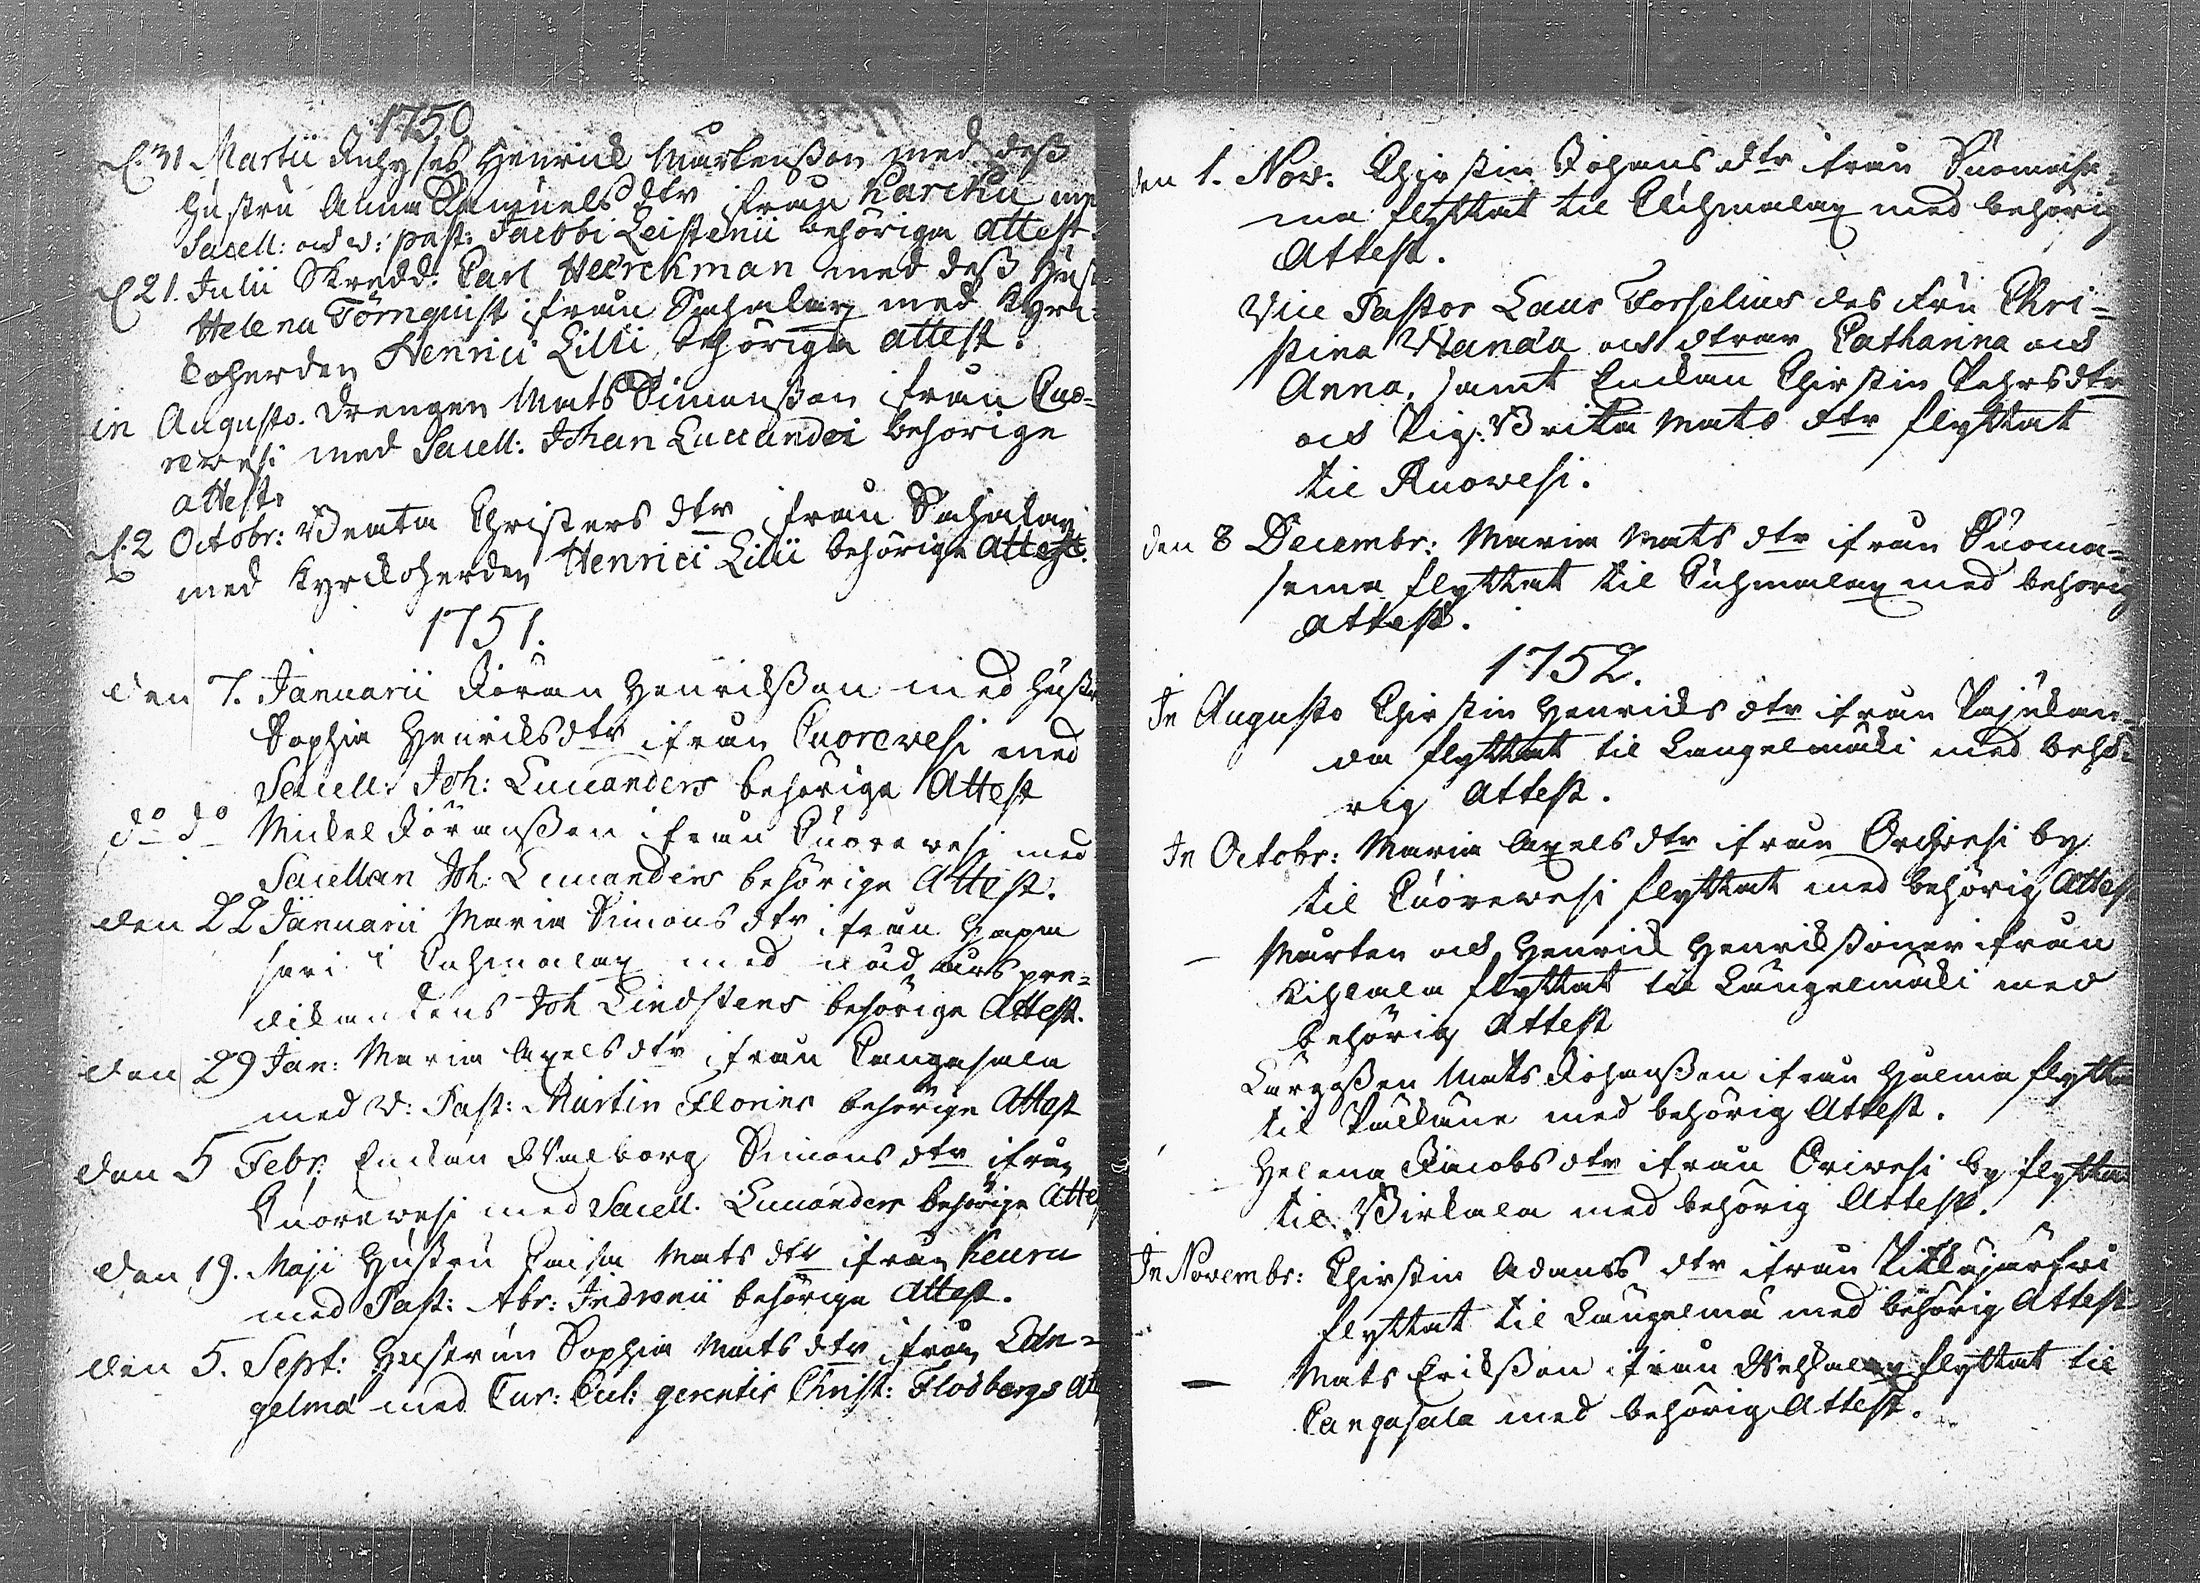 1750
d. 31 Martii Henrich Mårtensson med dess
hustru Anna Samuels dtr ifrån Karcku
Sacell: och v: past: Jacobi Leistenii behöriga attest.
d. 21. Julii Skredd: Carl Heerckman med dess
Helena Törnquist ifrån Sahalax med Kyrc-
koherden Henrici Lilii behöriga attest.
in Augusto. Drengen Mats Simonsson ifrån Cuo-
rewesi med Sacell: Johan Lucanders behörige
attest.
d. 2 Octobr: Beata Christers dtr ifrån Sahalax
med Kyrckoherden Henrici Lilii behörige Attest.
1751.
den 7. Januarii Jöran Henricksson med hustr
Sophia Henricksdtr ifrån Cuorewesi med
Sacell: Joh: Lucanders behöriga Attest
do do Michel Jöransson ifrån Cuorewesi med
Sacellan Joh: Lucanders behörige Attest.
den 22 Januarii Maria Simons dtr ifrån Hapa
sari i Cuhmalax med nådårs pre-
dikantens Joh Lindstens behörige Attest.
den 29 Jan: Maria Axels dtr ifrån Cangasala
med V: Past: Martin Florins behörige Attest
den 5 Febr. Enckan Walborg Simons dtr ifrån
Cuorewesi med Sacell. Lucanders behörige Atte
den 19. Maji Hustru Caisa Mats dtr ifrån Keuru
med Past: Abr: Indrenii behöriga Attest.
den 5. Sept: Hustrun Sophia Mats dtr ifrån Län-
gelmä med Cur: Cul: gerentis Christ: Flodbergs At
den 1. Nov: Chirstin Johans dtr ifrån Suomase
ma flyttat til Cuhmalax med behörig
Attest.
Vice Pastor Laur Forselius des Fru Chri-
stina Wanda och dtrar Catharina och
Anna, samt Enckan Chirstin Pehrsdtr
och Pig: Brita Mats dtr flyttat
til Ruowesi.
den 8 Decembr: Maria Mats dtr ifrån Suoma-
sema flyttat til Cuhmalax med behörig
Attest.
1752.
In Augusto Chirstin Henrichs dtr ifrån Pajukan-
da flyttat til Langelmäki med behö-
rig Attest.
In Octobr: Maria Axels dtr ifrån Orihwesi by
til Cuorewesi flyttat med behörig Attest
— Mårten och Henrich Henrickssöner ifrån
Kihlala flyttat til Längelmäki med
behörig Attest
Lars Mats Johansson ifrån Halma flytta
til Päläkäne med behörig Attest.
Helena Jacobs dtr ifrån Oriwesi by flytta
til Birkala med behörig Attest.
In Novembr: Chirstin Adams dtr ifrån Pitkäjärfwi
flyttat til Längelmä med behörig Attest
— Mats Ericksson ifrån Wehkalax flyttat til
Cangasala med behörig Attest.